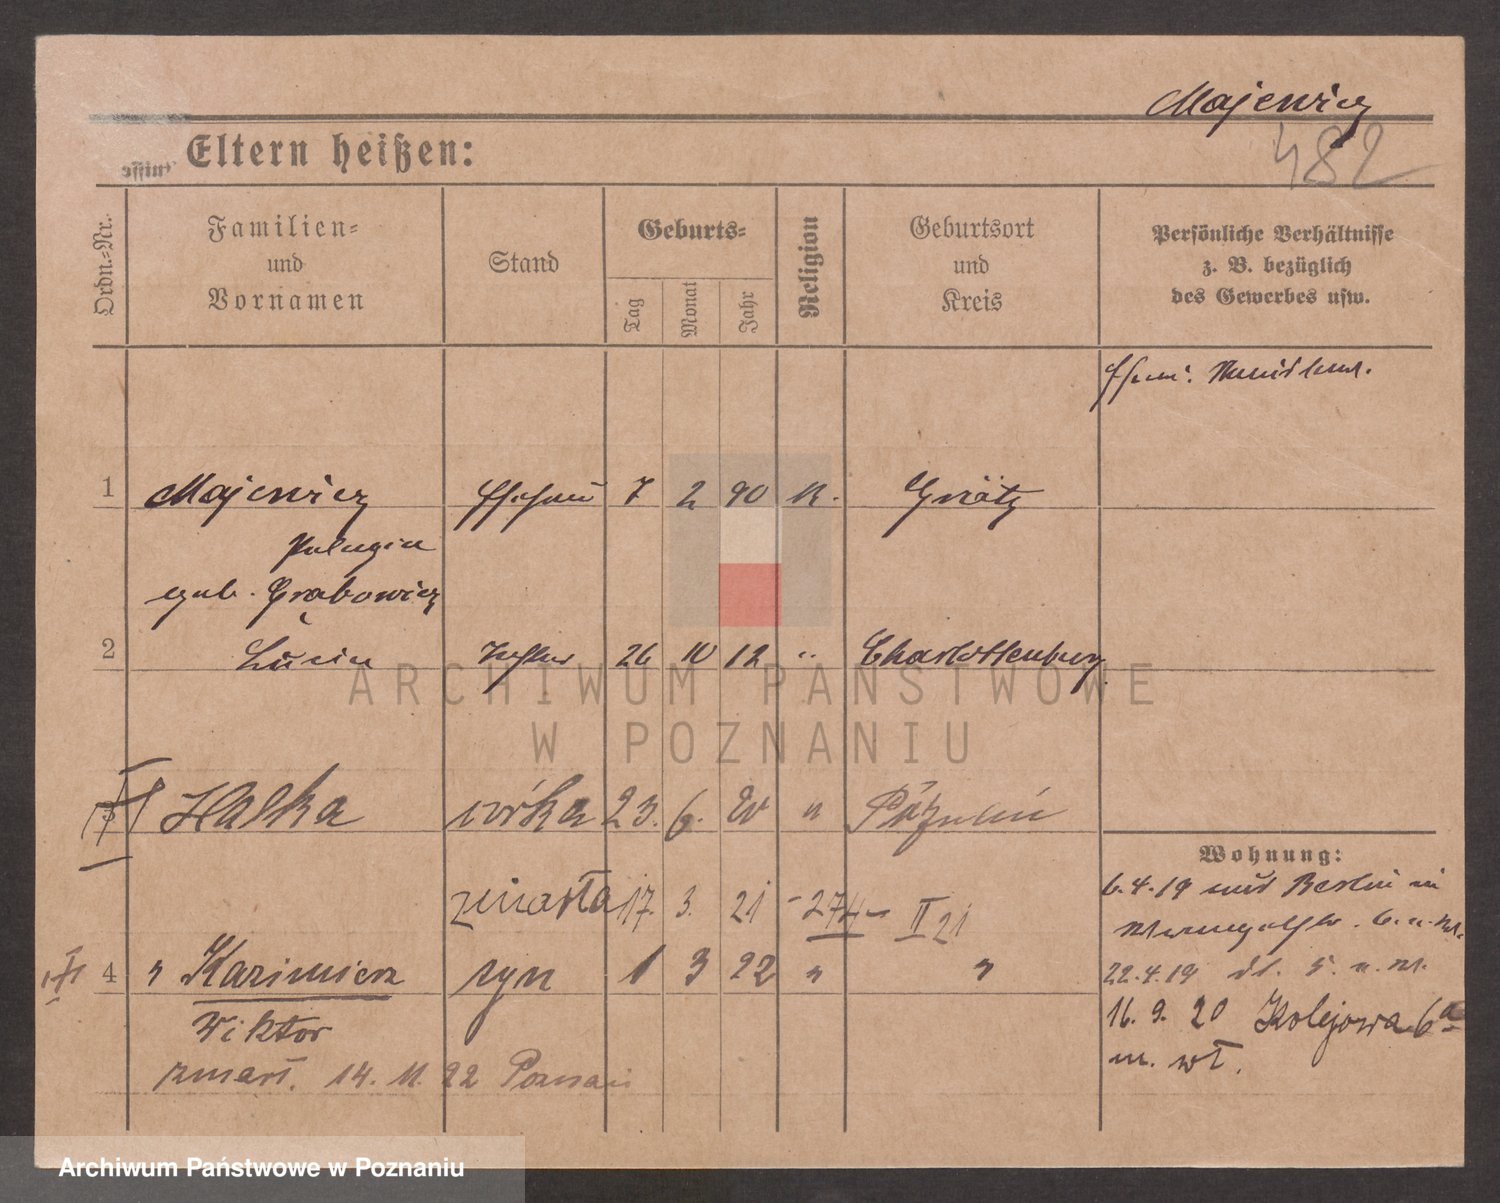 Majewicz
482
Eltern heißen:
Ordn.-Nr.
Familien-
und
Vornamen
Stand
Geburts-
Tag
Monat
Jahr
Religion
Geburtsort
und
Kreis
Persönliche Verhältnisse
z. B. bezüglich
des Gewerbes usw.
1 Majewicz Ehefrau 7 2 90 K. Grätz
Pelagia
geb. Grabowicz
2 Lucia Tochter 26 10 12 " Charlottenburg
ARCHIWUM PAŃSTWOWE
W POZNANIU
3 Halka córka 23. 6. 20 " Poznań
zmarła 17. 3. 21 - 274 - II 21
4 " Kazimierz syn 1 3 22 " "
Wiktor
zmarł. 14. 11. 22 Poznań
Wohnung:
6.4.19 aus Berlin in
22.4.19
16. 9. 20 Kolejowa 6a
m. wł.
Archiwum Państwowe w Poznaniu